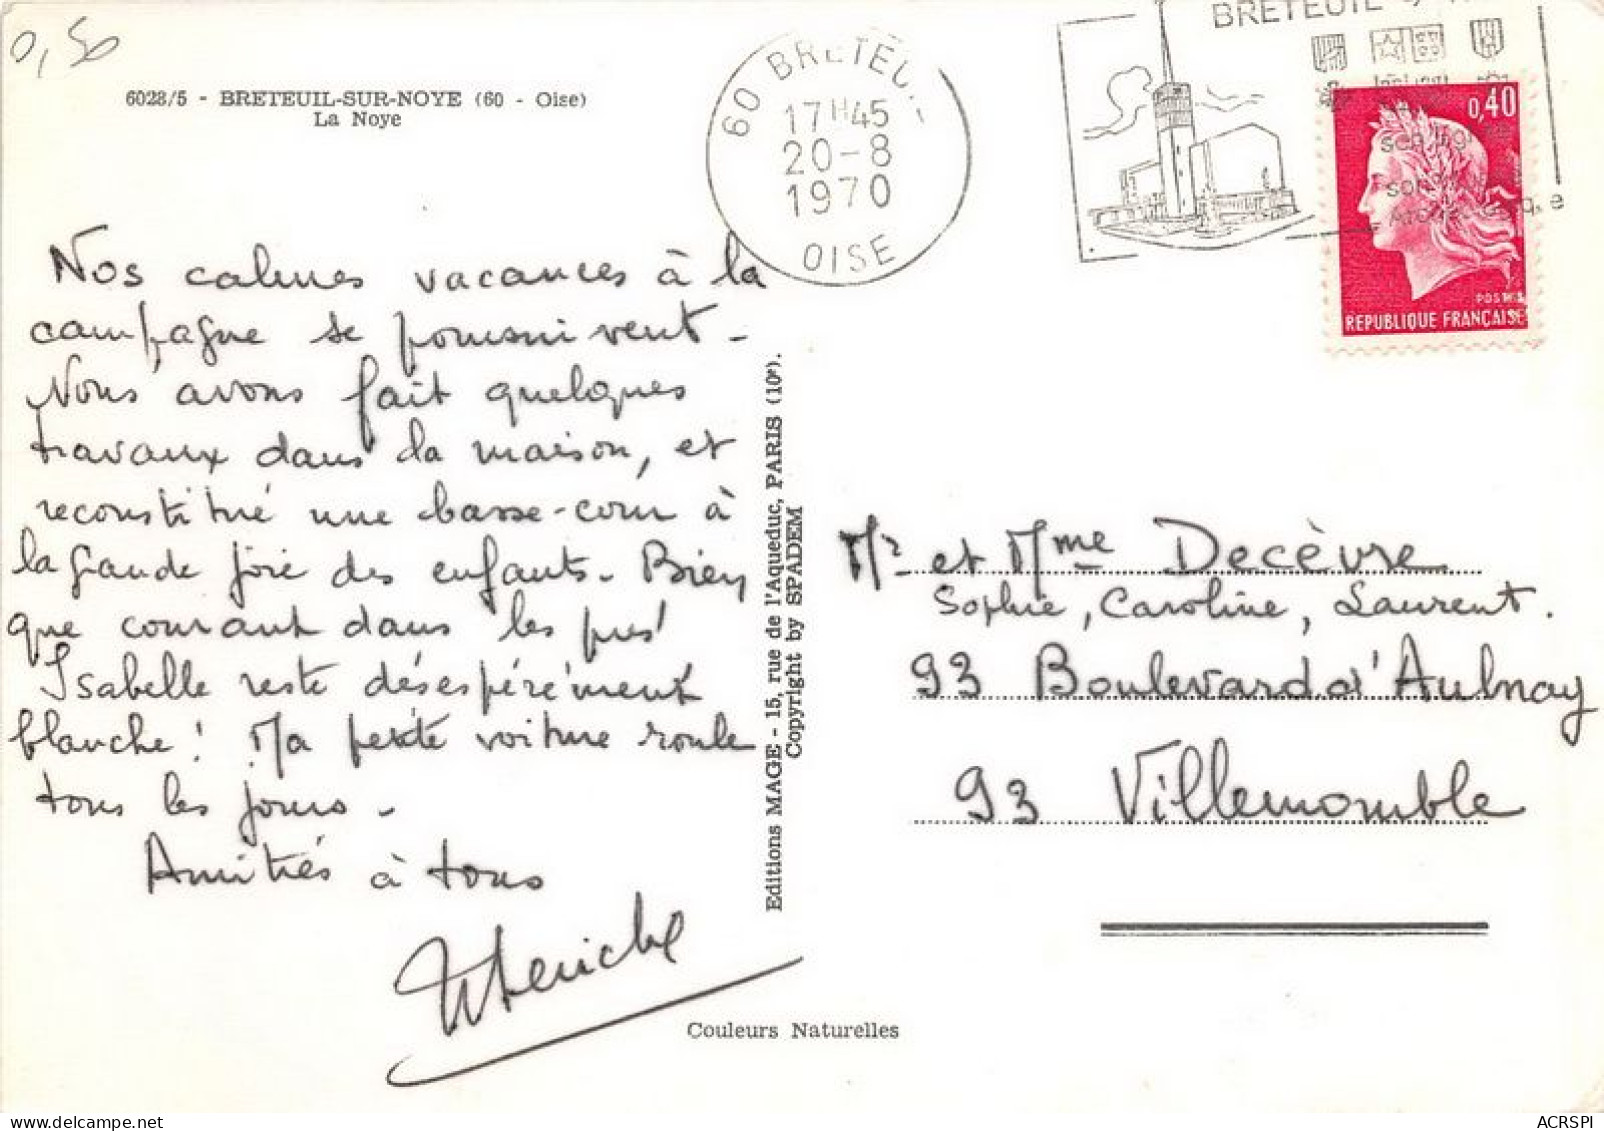 0,50
6028/5 - BRETEUIL-SUR-NOYE (60 - Oise)
La Noye
60 BRETEUIL
17H45
20-8
1970
OISE
BRETEUIL
0,40
POSTES
REPUBLIQUE FRANÇAISE
Nos calmes vacances à la
campagne se poursuivent -
Nous avons fait quelques
travaux dans la maison, et
reconstitué une basse-cour à
la grande joie des enfants - Bien
que courant dans les prés
Isabelle reste désespérément
blanche ! Ma petite voiture roule
tous les jours -
Amitiés à tous
Editions MAGE - 15, rue de l'Aqueduc, PARIS (10e).
Copyright by SPADEM
Mr et Mme Decèvre
Sophie, Caroline, Laurent.
93 Boulevard d'Aulnay
93 Villemomble
Couleurs Naturelles
ACRSPI